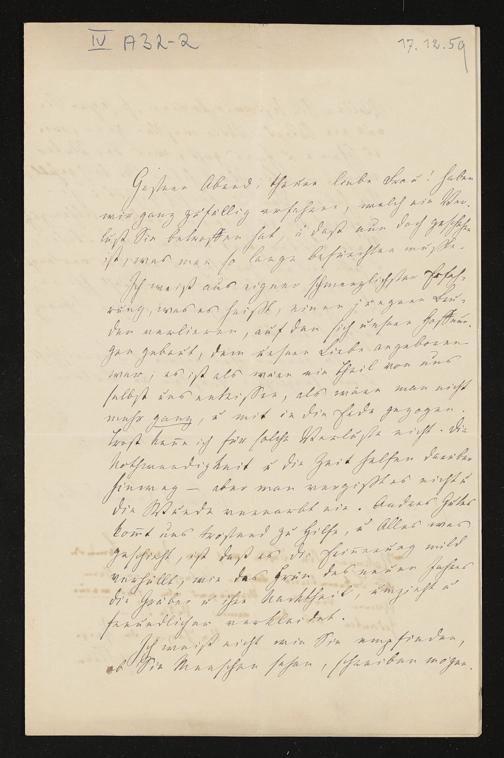 IV A32-2
17.12.59
Gestern Abend, theure liebe Frau! haben
wir ganz zufällig erfahren, welch ein Ver-
lust Sie betroffen hat, u daß nun doch geschehen
ist, was man so lange befürchten mußte.
Ich weiß aus eigner schmerzlichster Erfah-
rung, was es heißt, einen jüngern Bru-
der verlieren, auf den sich unsere Hoffnun-
gen gebaut, dem unsere Liebe angeboren
war; es ist als wäre ein Theil von uns
selbst uns entrissen, als wäre man nicht
mehr ganz, u mit in die Erde gezogen.
Trost kenne ich für solche Verluste nicht. Die
Nothwendigkeit u die Zeit helfen darüber
hinweg — aber man vergißt es nicht u
die Wunde vernarbt nie. Andres Gutes
kommt uns tröstend zu Hilfe, u Alles was
geschieht, ist daß es die Erinnerung mild
umhüllt, wie das Grün des neuen Jahres
die Gräber u ihre Nacktheit, umzieht u
freundlicher verkleidet.
Ich weiß nicht wie Sie empfinden,
ob Sie Menschen sehen, schreiben mögen.